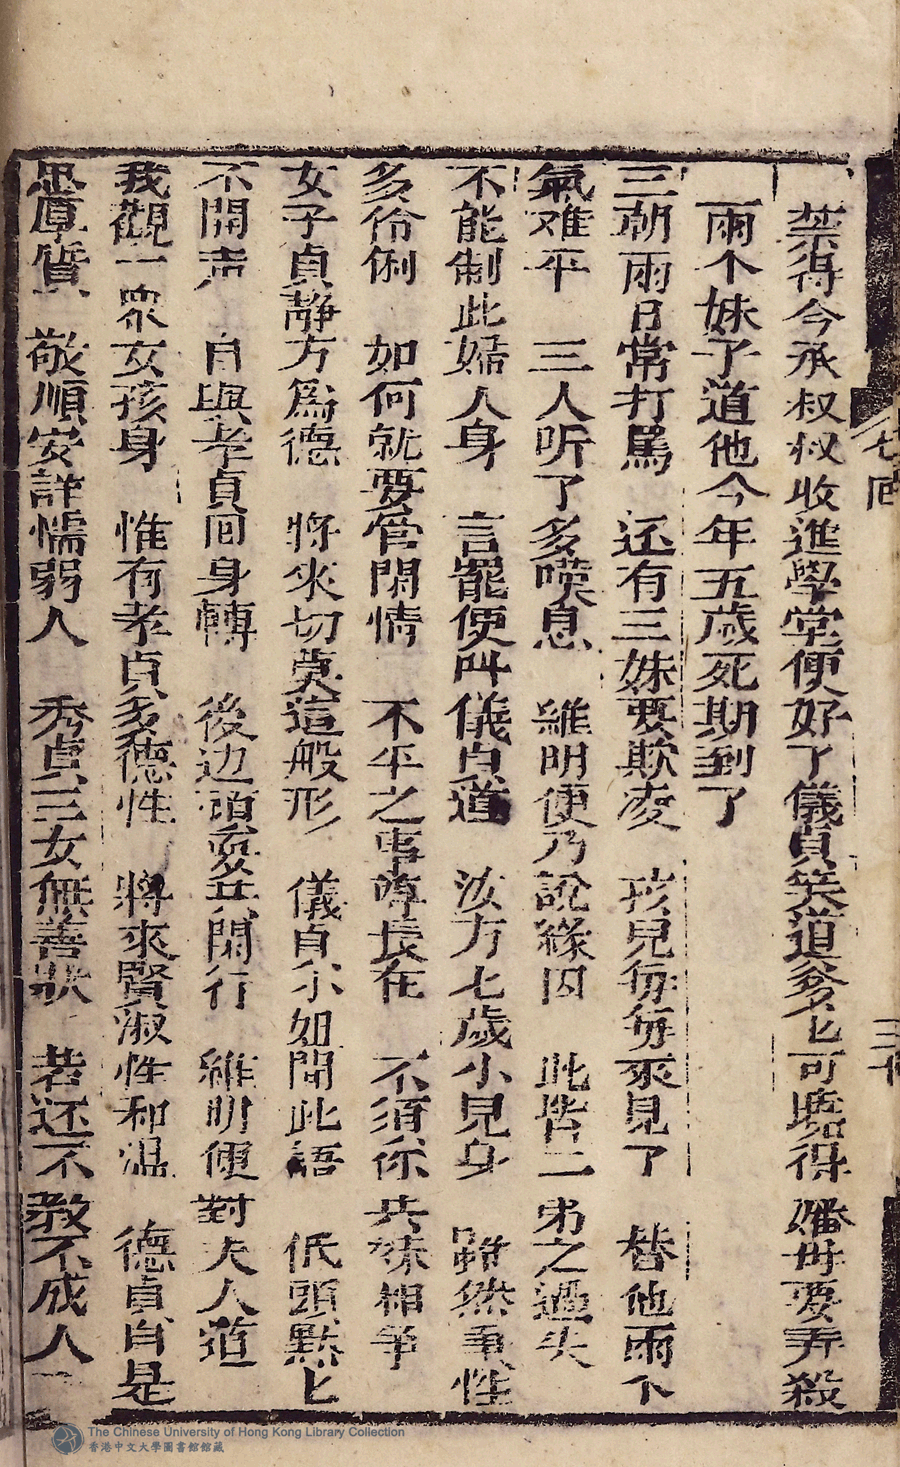 禁得今承叔叔收進學堂便好了儀貞笑道爹匕可曉得 嬸母要弄殺
兩个妹子道他今年五歲死期到了
三朝兩日常打罵 还有三妹要欺凌 孩兒每每來見了 替他兩下
氣难平 三人听了多嘆息 維明便乃說緣因 此皆二弟之過失
不能制此婦人身 言罷便叫儀貞道 汝方七歲小兒身 雖然秉性
多伶俐 如何就要管閑情 不平之事尊長在 不須你共妹相爭
女子貞靜方爲德 將來切莫這般形 儀貞小姐聞此語 低頭黙匕
不開声 自與孝貞囘身轉 後边頑耍共閑行 維明便對夫人道
我觀一衆女孩身 惟有孝貞多德性 將來賢淑性和温 德貞自是
忠厚質 敬順安詳懦弱人 秀貞三女無善狀 若还不敎不成人
七囘
三十
The Chinese University of Hong Kong Library Collection
香港中文大學圖書館館藏